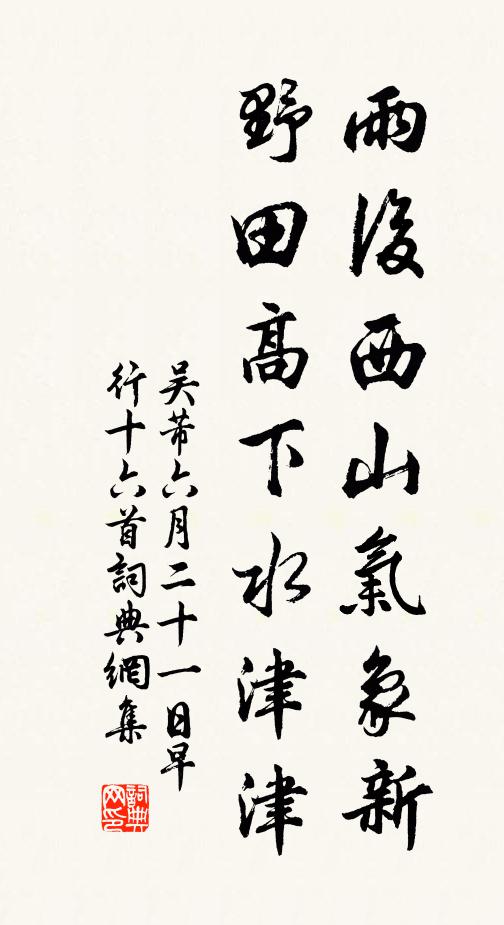 雨後西山氣象新
野田高下水津津
吴芾六月二十一日早
行十六首詞典網集
詞典
网印